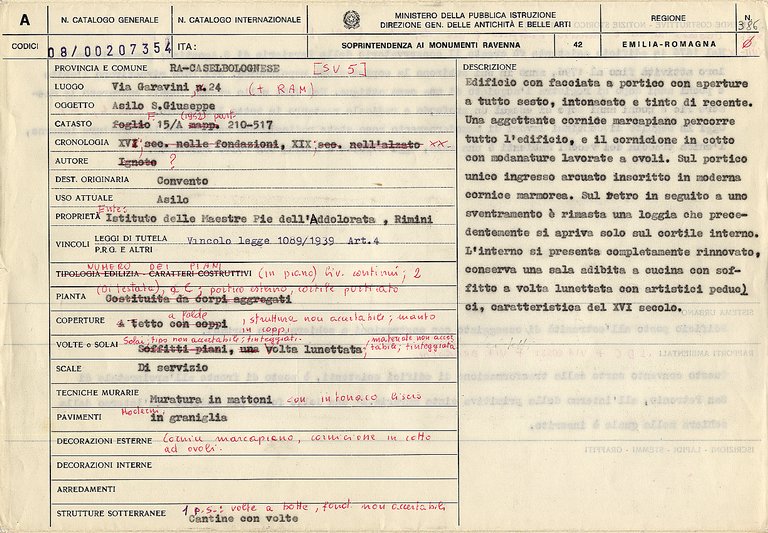 A
N. CATALOGO GENERALE
N. CATALOGO INTERNAZIONALE
MINISTERO DELLA PUBBLICA ISTRUZIONE
DIREZIONE GEN. DELLE ANTICHITÀ E BELLE ARTI
REGIONE
N.
386
CODICI
08/00207354
ITA:
SOPRINTENDENZA AI MONUMENTI RAVENNA
42
EMILIA-ROMAGNA
Ø
PROVINCIA E COMUNE RA-CASELBOLOGNESE [SV 5]
LUOGO Via Garavini n.24 (+ RAM)
OGGETTO Asilo S.Giuseppe
(1952) part.
CATASTO foglio F. 15/A mapp. 210-517
CRONOLOGIA XVI sec. nelle fondazioni, XIX sec. nell'alzato XX.
AUTORE Ignoto ?
DEST. ORIGINARIA Convento
USO ATTUALE Asilo
Ente:
PROPRIETÀ Istituto delle Maestre Pie dell'Addolorata , Rimini
VINCOLI LEGGI DI TUTELA
P.R.G. E ALTRI
Vincolo legge 1089/1939 Art.4
NUMERO DEI PIANI
TIPOLOGIA EDILIZIA - CARATTERI COSTRUTTIVI (in piano) liv. continui; 2
(di testata), a C; portico esterno, cortile porticato
PIANTA Costituita da corpi aggregati
a falde
COPERTURE A tetto con coppi , struttura non accertabile; manto
in coppi
Solai: tipo non accertabile; tinteggiati. , materiale non accer
VOLTE o SOLAI Soffitti piani, una volta lunettata, tabile; tinteggiata
SCALE Di servizio
TECNICHE MURARIE Muratura in mattoni con intonaco liscio
Moderni:
PAVIMENTI in graniglia
DECORAZIONI ESTERNE Cornice marcapiano, cornicione in cotto
ad ovoli.
DECORAZIONI INTERNE
ARREDAMENTI
1 p.s.: volte a botte, fond. non accertabili
STRUTTURE SOTTERRANEE Cantine con volte
DESCRIZIONE
Edificio con facciata a portico con aperture
a tutto sesto, intonacato e tinto di recente.
Una aggettante cornice marcapiano percorre
tutto l'edificio, e il cornicione in cotto
con modanature lavorate a ovoli. Sul portico
unico ingresso arcuato inscritto in moderna
cornice marmorea. Sul retro in seguito a uno
sventramento è rimasta una loggia che prece-
dentemente si apriva solo sul cortile interno.
L'interno si presenta completamente rinnovato,
conserva una sala adibita a cucina con sof-
fitto a volta lunettata con artistici peduc)
ci, caratteristica del XVI secolo.